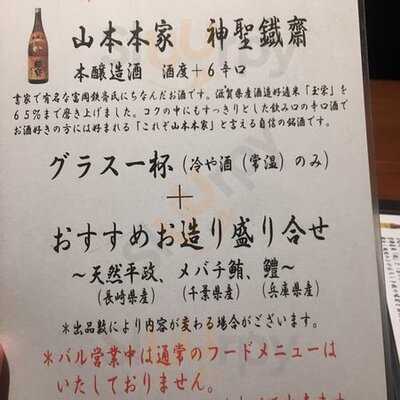 山本本家 神聖鐵齋
本醸造酒 酒度＋6辛口
書家で有名な富岡鉄斎氏にちなんだお酒です。滋賀県産酒造好適米「玉栄」を
65％まで磨き上げました。コクの中にもすっきりとした飲み口の辛口酒で
お酒好きの方には好まれる「これぞ山本本家」と言える自信の銘酒です。
グラス一杯（冷や酒（常温）のみ）
＋
おすすめお造り盛り合せ
～天然平政、メバチ鮪、鱧～
（長崎県産） （千葉県産） （兵庫県産）
＊出品数により内容が変わる場合がございます。
＊バル営業中は通常のフードメニューは
いたしておりません。